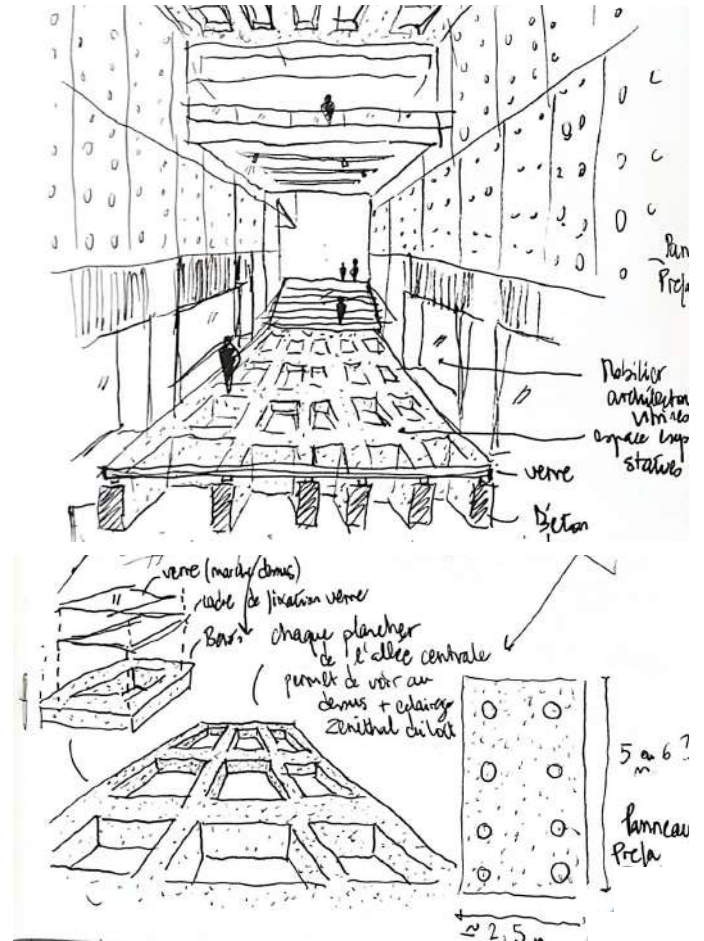 Pan
Prefa
Mobilier
architectu
vitrines
espace exp
statues
verre
Béton
verre (marche dessus)
cadre de fixation verre
Beton
chaque plancher
de l'allée centrale
permet de voir au
dessus + eclairage
zenithal
5 ou 6 ?
m
Panneau
Prefa
≈ 2,5 m